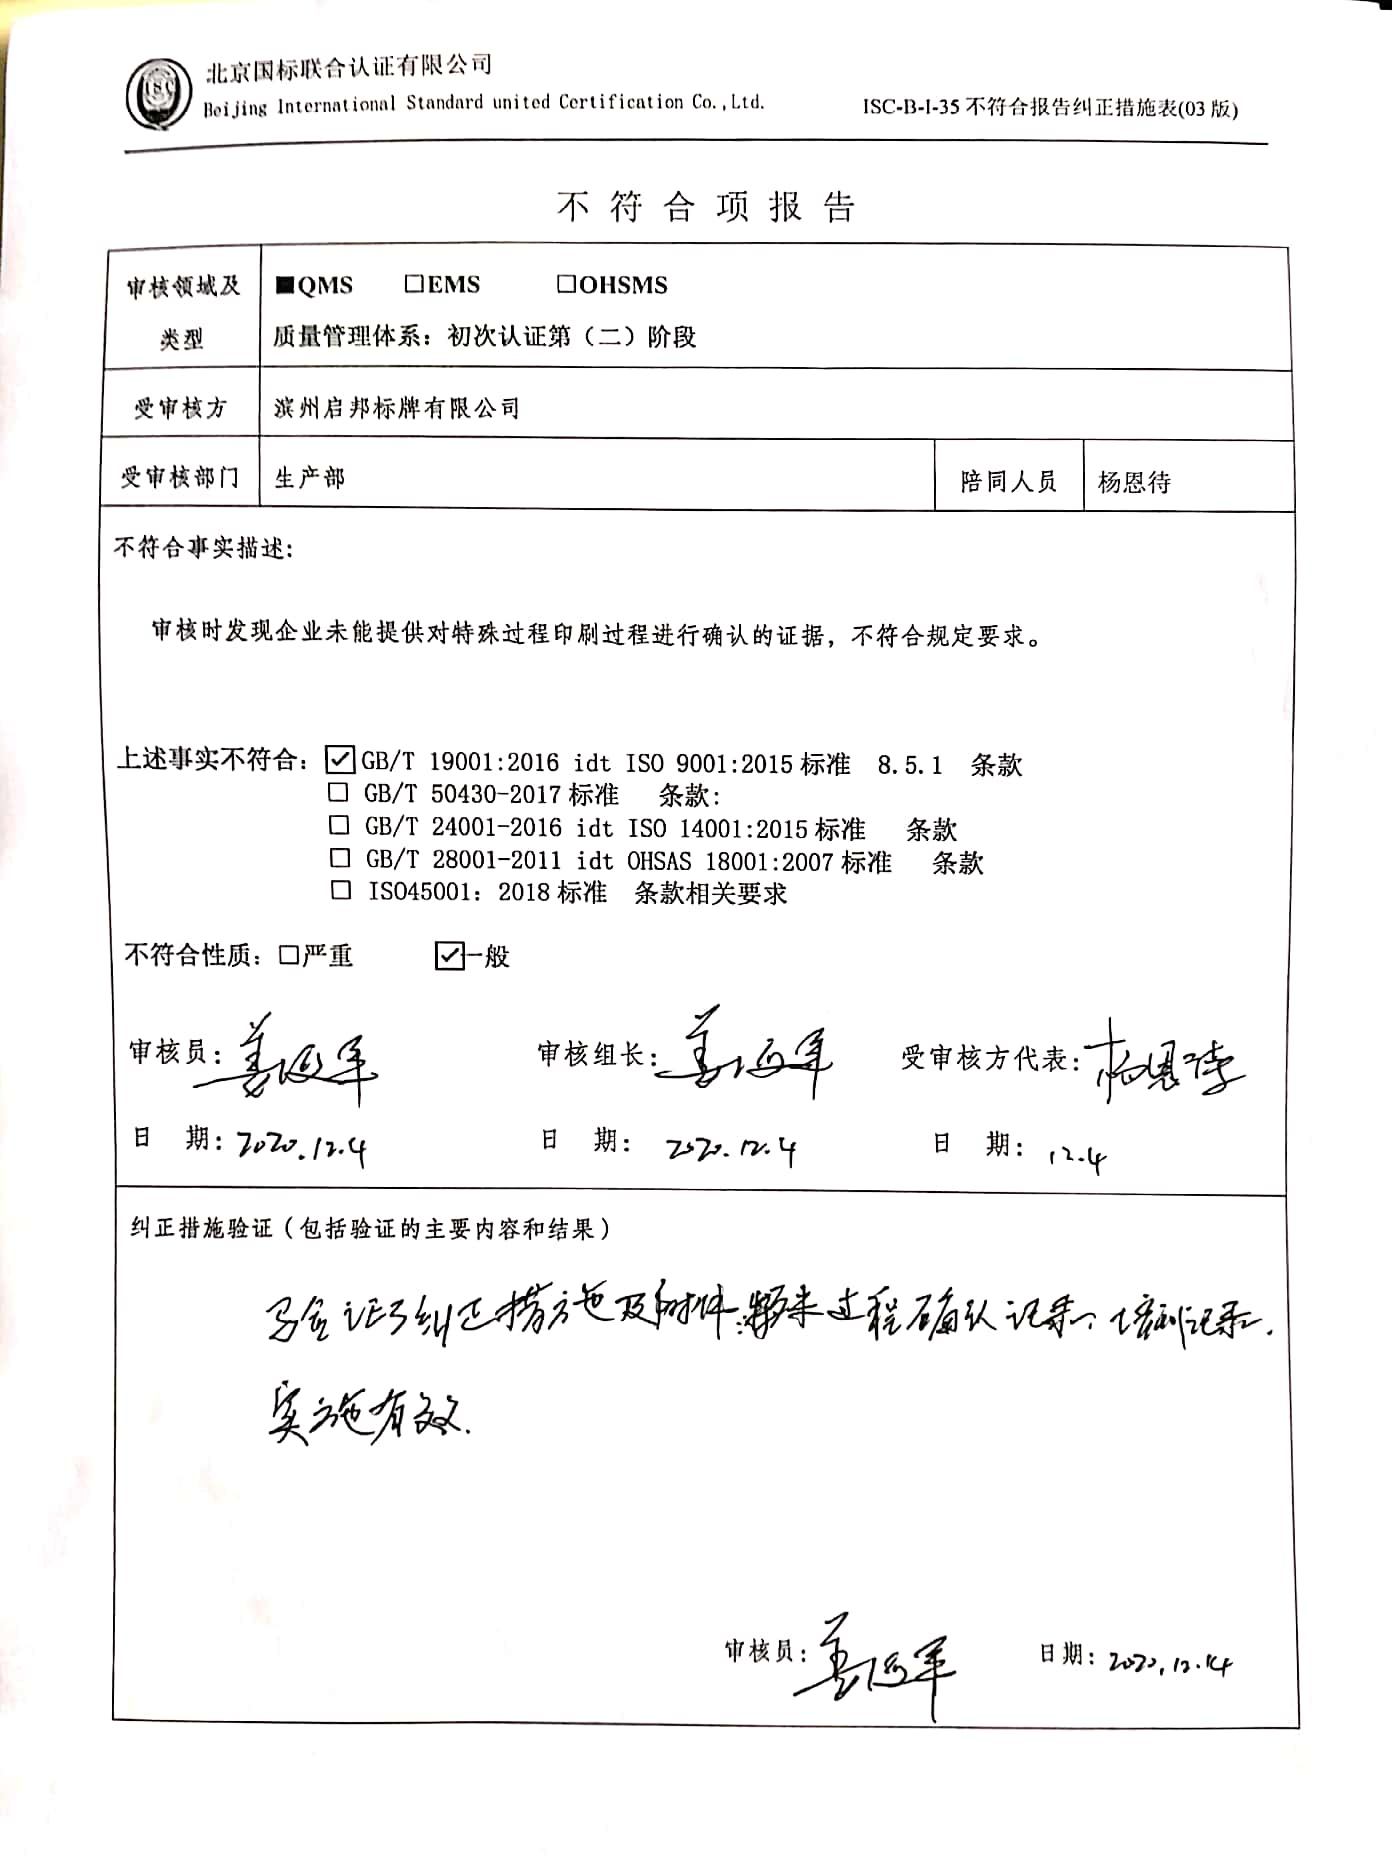 ISC
北京国标联合认证有限公司
Beijing International Standard united Certification Co.,Ltd.
ISC-B-I-35 不符合报告纠正措施表(03 版)
不符合项报告
审核领域及类型
■QMS □EMS □OHSMS
质量管理体系：初次认证第（二）阶段
受审核方 滨州启邦标牌有限公司
受审核部门 生产部 陪同人员 杨恩待
不符合事实描述:
审核时发现企业未能提供对特殊过程印刷过程进行确认的证据，不符合规定要求。
上述事实不符合: ☑GB/T 19001:2016 idt ISO 9001:2015 标准 8.5.1 条款
□ GB/T 50430-2017 标准 条款:
□ GB/T 24001-2016 idt ISO 14001:2015 标准 条款
□ GB/T 28001-2011 idt OHSAS 18001:2007 标准 条款
□ ISO45001: 2018 标准 条款相关要求
不符合性质: □严重 ☑一般
审核员: 审核组长: 受审核方代表: 杨恩待
日 期: 2020.12.4 日 期: 2020.12.4 日 期: 12.4
纠正措施验证（包括验证的主要内容和结果）
验证了纠正措施及附件: 过程确认记录、培训记录.
实施有效.
审核员: 日期: 2020.12.14